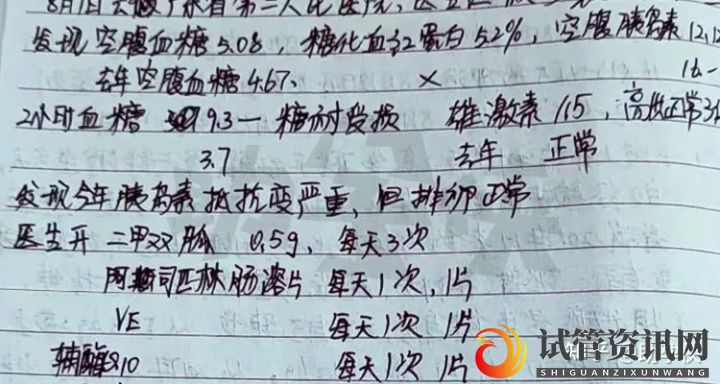 8月1日去做广东省第二人民医院,
发现空腹血糖5.08,糖化血红蛋白5.2%,空腹胰岛素12.12
去年空腹血糖4.67. × 16-
2小时血糖 9.3—糖耐受损 雄激素 1.15,高
3.7 去年 正常
发现今年胰岛素抵抗变严重,但排卵正常
医生开二甲双胍 0.5g,每天3次
阿司匹林肠溶片 每天1次,1片
VE 每天1次 1片
辅酶Q10 每天1次 1片
试管资讯网
SHIGUANZIXUNWANG